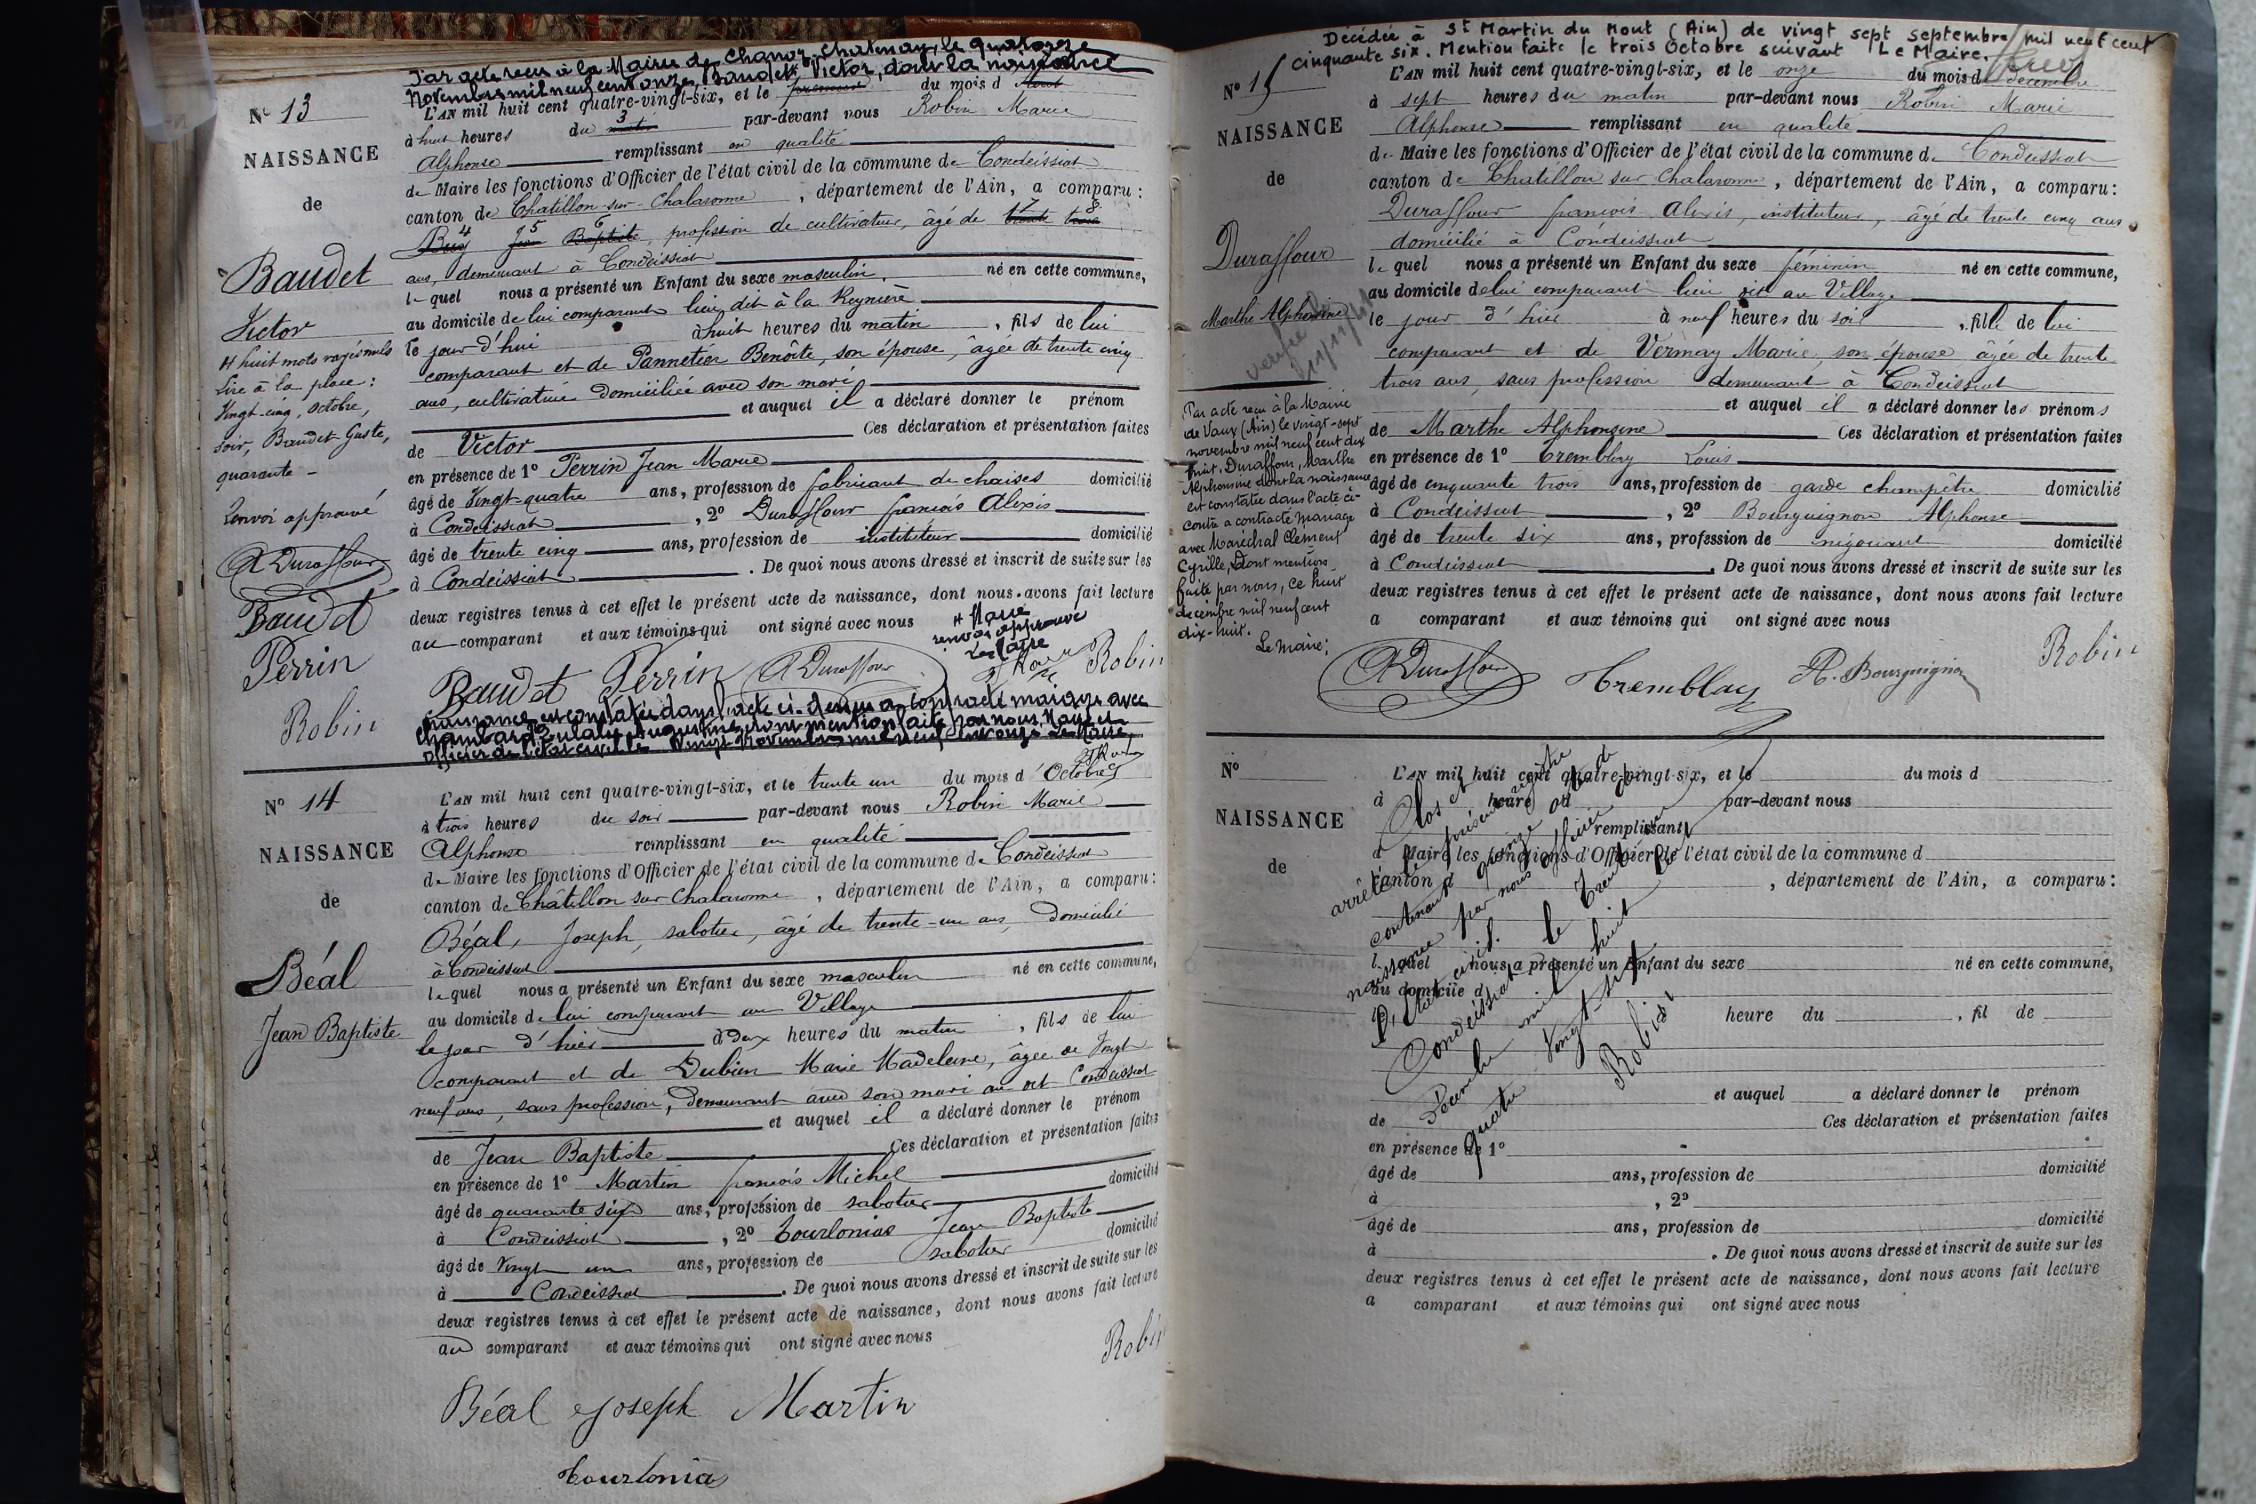 Par acte reçu à la Mairie de Chanoz-Chatenay, le quatorze
Novembre mil neuf cent onze, Baudet, Victor, dont la naissance
N° 13
NAISSANCE
de
Baudet
Victor
huit mots rayés nuls
Lire à la place :
Vingt-cinq, octobre,
soir, Baudet Guste,
quarante -
Renvoi approuvé
A Duraffour
Baudet
Perrin
Robin
L'AN mil huit cent quatre-vingt-six, et le du mois d
à huit heures du matin par-devant nous Robin Marie
Alphonse remplissant en qualité
de Maire les fonctions d'Officier de l'état civil de la commune de Condeissiat
canton de Chatillon-sur-Chalaronne, département de l'Ain, a comparu :
Buy Jean Baptiste, profession de cultivateur, âgé de trente trois
ans, demeurant à Condeissiat
lequel nous a présenté un Enfant du sexe masculin, né en cette commune,
au domicile de lui comparant lieu dit à la Reynière
le jour d'hui à huit heures du matin, fils de lui
comparant et de Pannetier Benôite, son épouse, âgée de trente cinq
ans, cultivatrice domiciliée avec son mari
et auquel il a déclaré donner le prénom
de Victor Ces déclaration et présentation faites
en présence de 1° Perrin Jean Marie
âgé de Vingt-quatre ans, profession de fabricant de chaises domicilié
à Condeissiat, 2° Duraffour françois Alexis
âgé de trente cinq ans, profession de instituteur domicilié
à Condeissiat. De quoi nous avons dressé et inscrit de suite sur les
deux registres tenus à cet effet le présent acte de naissance, dont nous avons fait lecture
au comparant et aux témoins qui ont signé avec nous
renvoi approuvé
Le Maire
Baudet Perrin A Duraffour Robin
naissance est constatée dans l'acte ci-dessus a contracté mariage avec
Chambard Eulalie Augustine, dont mention faite par nous, Maire et
Officier de l'état civil le Vingt Novembre mil neuf cent onze Le Maire
N° 14
NAISSANCE
de
Béal
Jean Baptiste
L'AN mil huit cent quatre-vingt-six, et le trente un du mois d'Octobre
à trois heures du soir par-devant nous Robin Marie
Alphonse remplissant en qualité
de Maire les fonctions d'Officier de l'état civil de la commune de Condeissiat
canton de Châtillon sur Chalaronne, département de l'Ain, a comparu :
Béal, Joseph, sabotier, âgé de trente-un ans, domicilié
à Condeissiat
lequel nous a présenté un Enfant du sexe masculin né en cette commune,
au domicile de lui comparant au Village
le jour d'hier à deux heures du matin, fils de lui
comparant et de Dubien Marie Madeleine, âgée de Vingt
neuf ans, sans profession, demeurant avec son mari au dit Condeissiat
et auquel il a déclaré donner le prénom
de Jean Baptiste Ces déclaration et présentation faites
en présence de 1° Martin françois Michel
âgé de quarante six ans, profession de sabotier domicilié
à Condeissiat, 2° Tourlonias Jean Baptiste
âgé de Vingt un ans, profession de sabotier domicilié
à Condeissiat. De quoi nous avons dressé et inscrit de suite sur les
deux registres tenus à cet effet le présent acte de naissance, dont nous avons fait lecture
au comparant et aux témoins qui ont signé avec nous
Robin
Béal Joseph Martin
Tourlonias
Décédée à St Martin du Mont (Ain) de vingt sept septembre mil neuf cent
cinquante six. Mention faite le trois Octobre suivant Le Maire.
N° 15
NAISSANCE
de
Duraffour
Marthe Alphonsine
Par acte reçu à la Mairie
de Vaux (Ain) le vingt-sept
novembre mil neuf cent dix
huit, Duraffour, Marthe
Alphonsine dont la naissance
est constatée dans l'acte ci-
contre a contracté mariage
avec Maréchal Clément
Cyrille, Dont mention
faite par nous, ce huit
décembre mil neuf cent
dix-huit.
Le Maire;
L'AN mil huit cent quatre-vingt-six, et le onze du mois d décembre
à sept heures du matin par-devant nous Robin Marie
Alphonse remplissant en qualité
de Maire les fonctions d'Officier de l'état civil de la commune d. Condeissiat
canton de Chatillon sur Chalaronne, département de l'Ain, a comparu :
Duraffour françois Alexis, instituteur, âgé de trente cinq ans
domicilié à Condeissiat
lequel nous a présenté un Enfant du sexe féminin né en cette commune,
au domicile de lui comparant lieu dit au Village
le jour d'hier à neuf heures du soir, fille de lui
comparant et de Vermay Marie, son épouse âgée de trente
trois ans, sans profession demeurant à Condeissiat
et auquel il a déclaré donner les prénoms
de Marthe Alphonsine Ces déclaration et présentation faites
en présence de 1° Tremblay Louis
âgé de cinquante trois ans, profession de garde champêtre domicilié
à Condeissiat, 2° Bourguignon Alphonse
âgé de trente six ans, profession de négociant domicilié
à Condeissiat. De quoi nous avons dressé et inscrit de suite sur les
deux registres tenus à cet effet le présent acte de naissance, dont nous avons fait lecture
a comparant et aux témoins qui ont signé avec nous
A Duraffour Tremblay A. Bourguignon Robin
N°
NAISSANCE
de
L'AN mil huit cent quatre-vingt-six, et le du mois d
à heure d par-devant nous
remplissant
d Maire les fonctions d'Officier de l'état civil de la commune d
canton d, département de l'Ain, a comparu :
l quel nous a présenté un Enfant du sexe né en cette commune,
au domicile d
l heure du, fil de
et auquel a déclaré donner le prénom
de Ces déclaration et présentation faites
en présence de 1°
âgé de ans, profession de domicilié
à, 2°
âgé de ans, profession de domicilié
à. De quoi nous avons dressé et inscrit de suite sur les
deux registres tenus à cet effet le présent acte de naissance, dont nous avons fait lecture
a comparant et aux témoins qui ont signé avec nous
Clos et
arrêté le présent registre
contenant quinze actes de
naissance par nous officier de
l'état civil. le trente un
Décembre mil huit cent
quatre Vingt-six
Robin